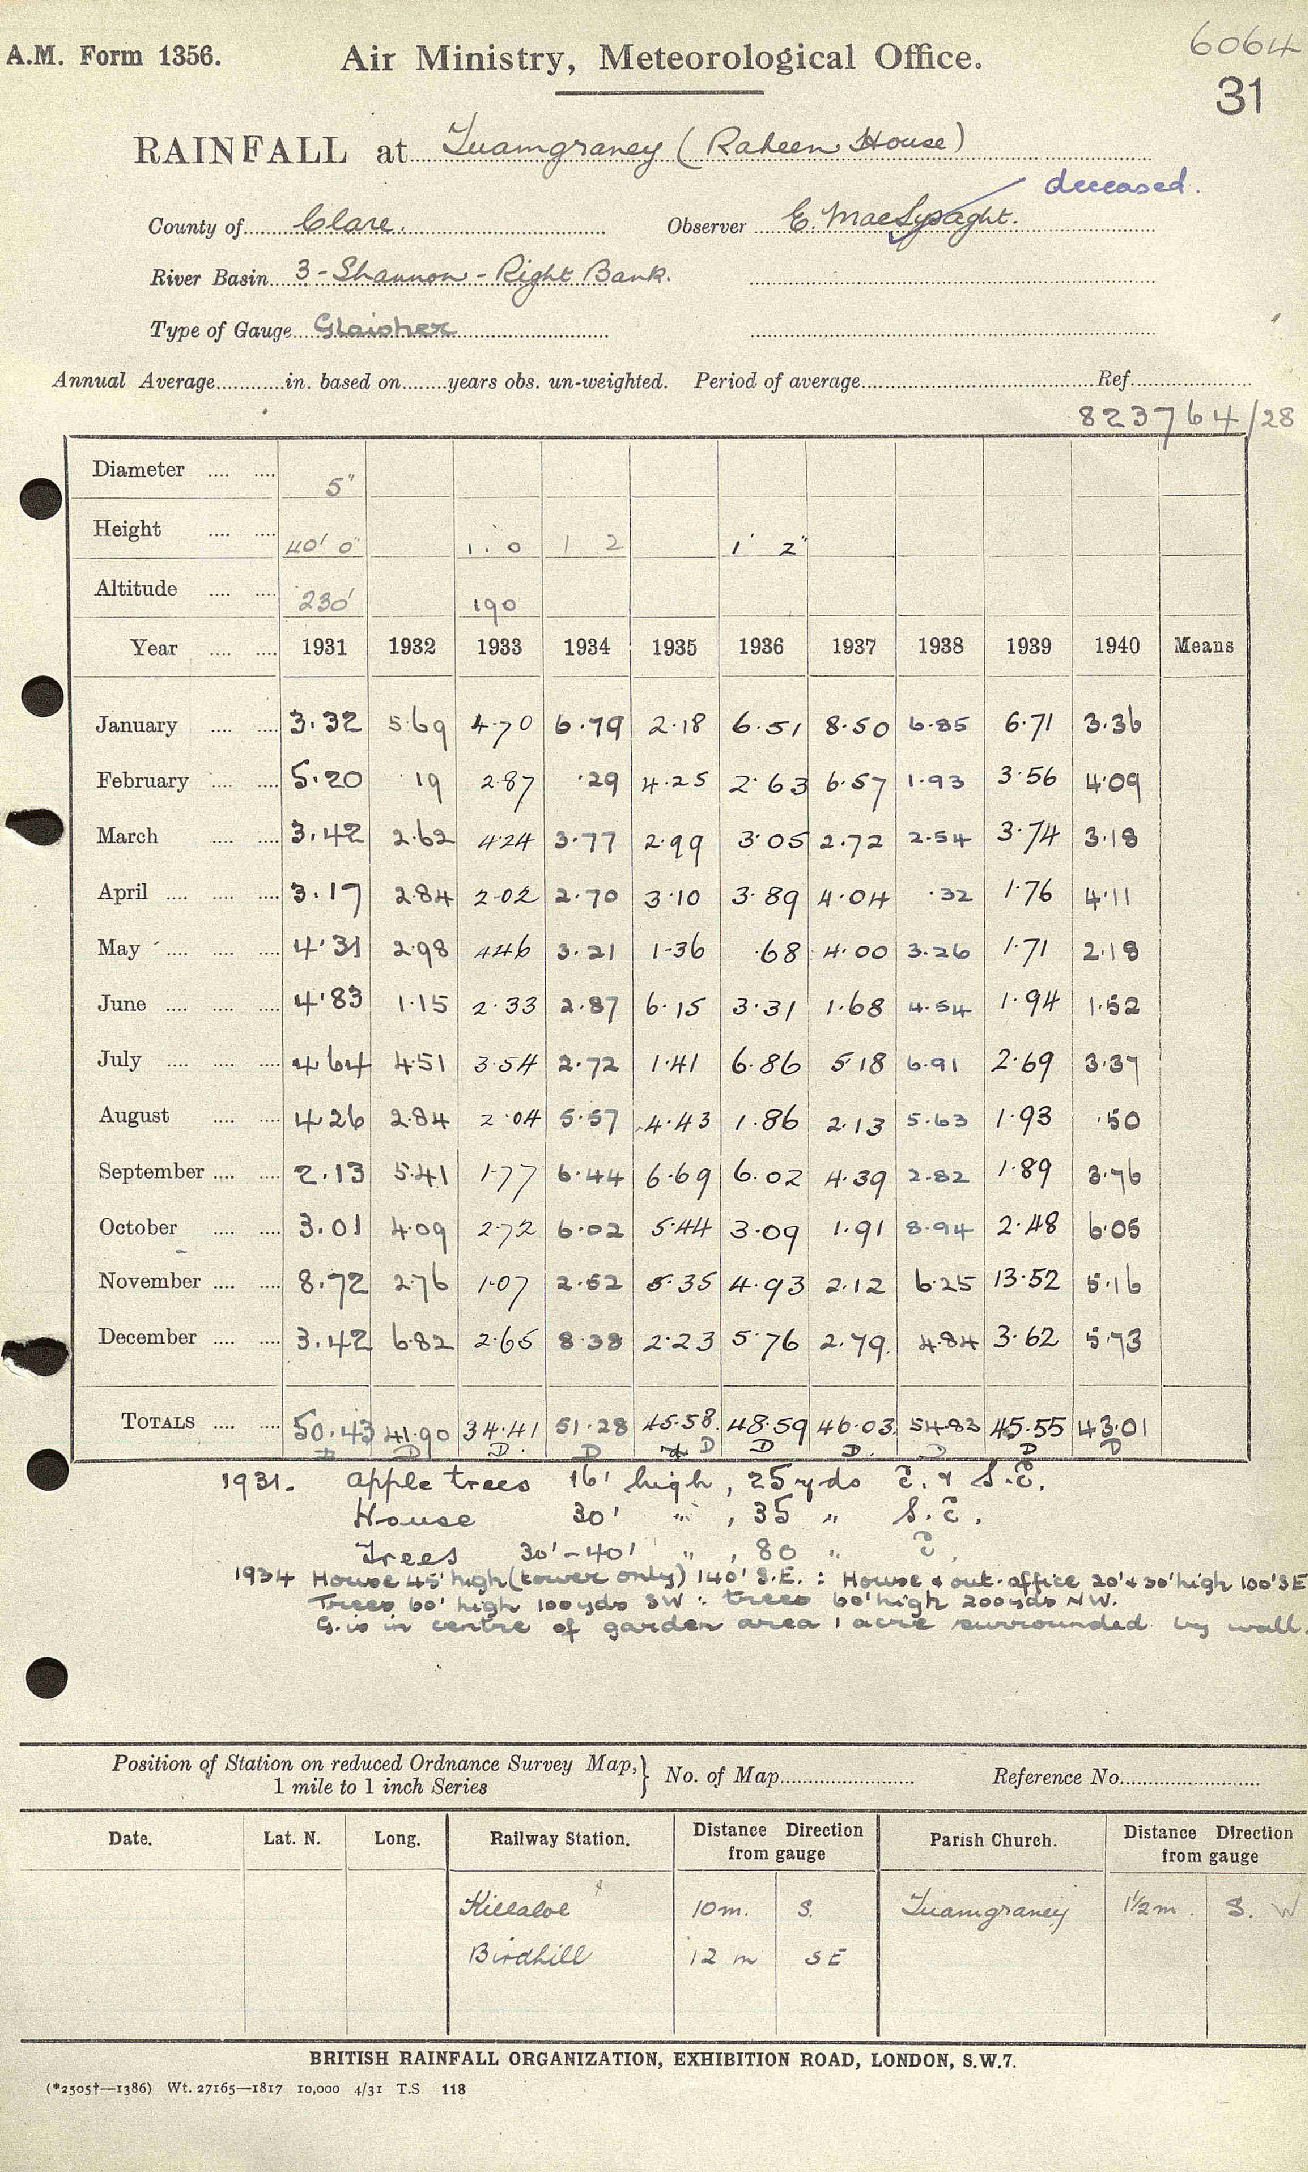 6064
A.M. Form 1356. Air Ministry, Meteorological Office.
31
RAINFALL at Tuamgraney (Raheen House)
deceased.
County of Clare. Observer E. MacLysaght.
River Basin 3 - Shannon - Right Bank.
Type of Gauge Glaisher
Annual Average in. based on years obs. un-weighted. Period of average Ref.
823764/28
Diameter 5"
Height 40' 0" 1 . 0 1 2 1' 2"
Altitude 230' 190
Year 1931 1932 1933 1934 1935 1936 1937 1938 1939 1940 Means
January 3.32 5.69 4.70 6.79 2.18 6.51 8.50 6.85 6.71 3.36
February 5.20 19 2.87 .29 4.25 2.63 6.57 1.93 3.56 4.09
March 3.42 2.62 4.24 3.77 2.99 3.05 2.72 2.54 3.74 3.18
April 3.17 2.84 2.02 2.70 3.10 3.89 4.04 .32 1.76 4.11
May 4.31 2.98 4.46 3.21 1.36 .68 4.00 3.26 1.71 2.18
June 4.83 1.15 2.33 2.87 6.15 3.31 1.68 4.54 1.94 1.52
July 4.64 4.51 3.54 2.72 1.41 6.86 5.18 6.91 2.69 3.37
August 4.26 2.84 2.04 5.57 4.43 1.86 2.13 5.63 1.93 .50
September 2.13 5.41 1.77 6.44 6.69 6.02 4.39 2.82 1.89 3.76
October 3.01 4.09 2.72 6.02 5.44 3.09 1.91 8.94 2.48 6.05
November 8.72 2.76 1.07 2.52 5.35 4.93 2.12 6.25 13.52 5.16
December 3.42 6.82 2.65 8.38 2.23 5.76 2.79. 4.84 3.62 5.73
TOTALS 50.43 41.90 34.41 51.28 45.58. 48.59 46.03. 54.83 45.55 43.01
D D D. D D D D. D D D
1931. Apple trees 16' high, 25 yds E. & S.E.
House 30' " , 35 " S.E.
Trees 30'-40' " , 80 " E.
1934 House 45' high (tower only) 140' S.E. : House & out-office 20' & 30' high 100' SE
Trees 60' high 100 yds SW : trees 60' high 200 yds NW.
G. is in centre of garden area 1 acre surrounded by wall.
Position of Station on reduced Ordnance Survey Map, } No. of Map Reference No.
1 mile to 1 inch Series
Date. Lat. N. Long. Railway Station. Distance Direction from gauge Parish Church. Distance Direction from gauge
Killaloe 10m. S. Tuamgraney 1½m. S. W
Birdhill 12 m SE
BRITISH RAINFALL ORGANIZATION, EXHIBITION ROAD, LONDON, S.W.7.
(*2505†—1386) Wt. 27165—1817 10,000 4/31 T.S 118